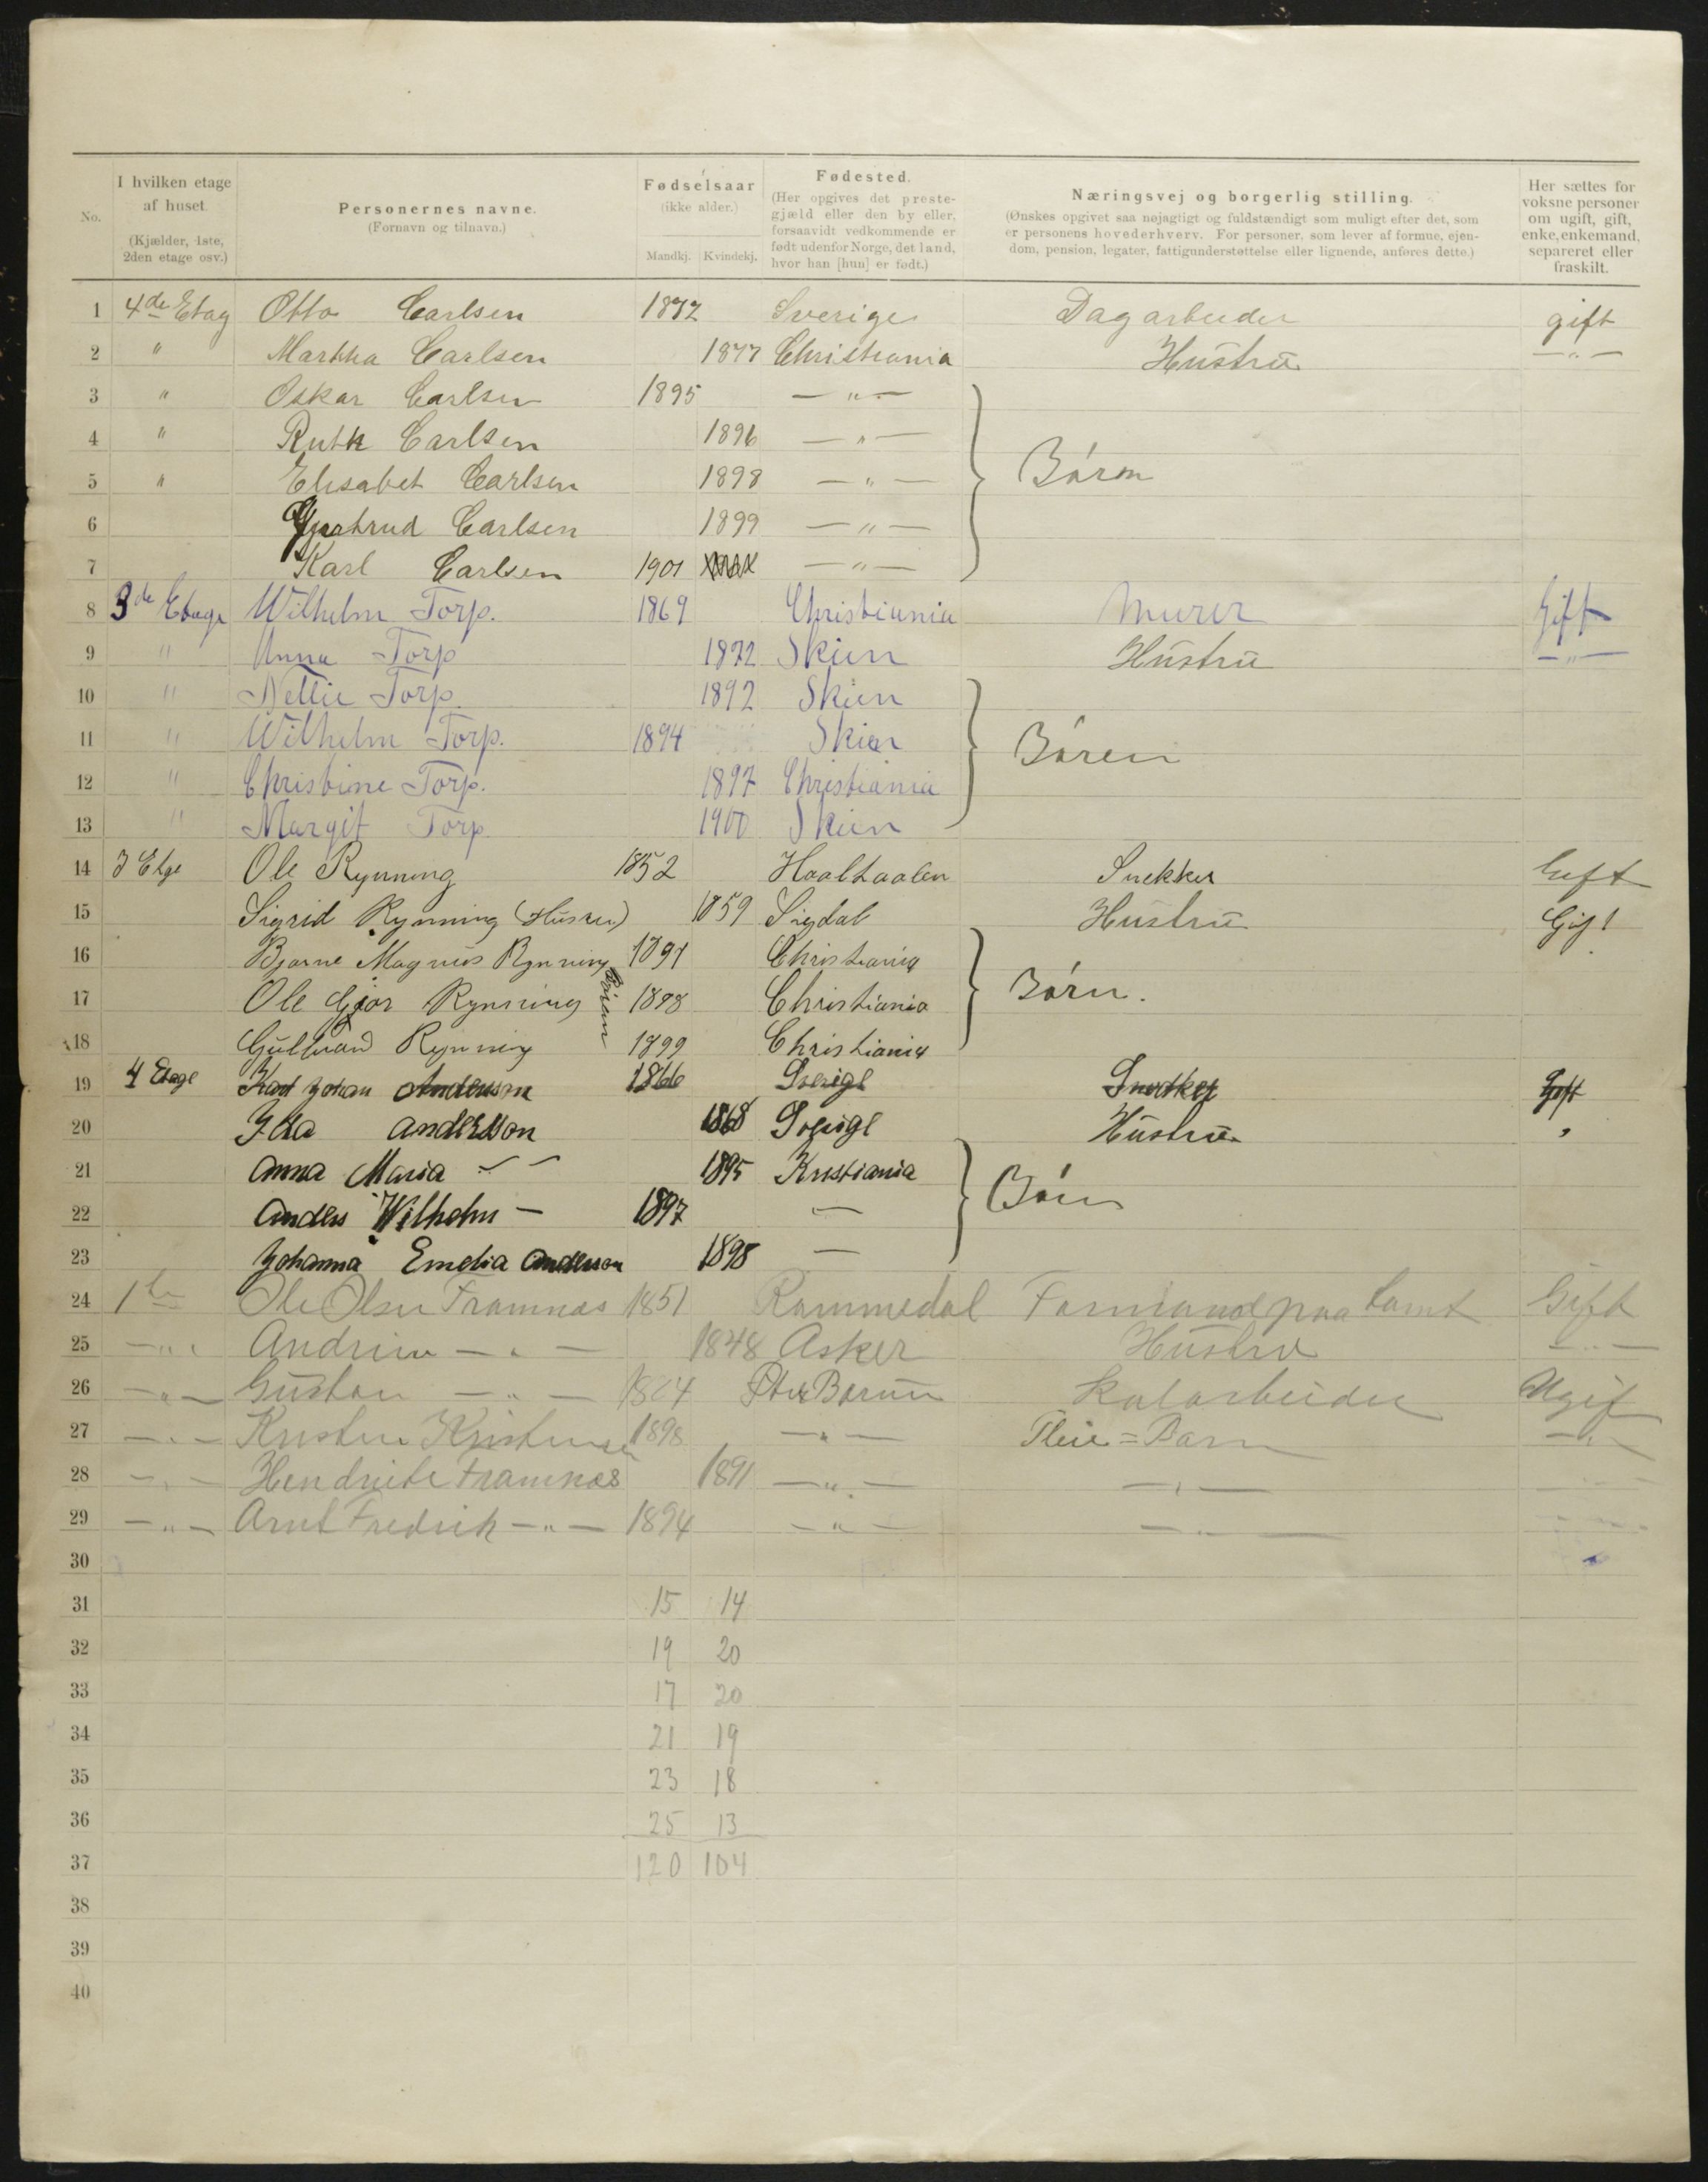 No.
I hvilken etage af huset. (Kjælder, 1ste, 2den etage osv.)
Personernes navne. (Fornavn og tilnavn.)
Fødselsaar (ikke alder.) Mandkj. Kvindekj.
Fødested. (Her opgives det preste-gjæld eller den by eller, forsaavidt vedkommende er født udenfor Norge, det land, hvor han [hun] er født.)
Næringsvej og borgerlig stilling. (Ønskes opgivet saa nøjagtigt og fuldstændigt som muligt efter det, som er personens hovederhverv. For personer, som lever af formue, ejen-dom, pension, legater, fattigunderstøttelse eller lignende, anføres dette.)
Her sættes for voksne personer om ugift, gift, enke, enkemand, separeret eller fraskilt.
1 4de Etag Otto Carlsen 1872 Sverige Dagarbeider gift
2 " Martha Carlsen 1877 Christiania Hustru — " —
3 " Oskar Carlsen 1895 — " —
4 " Ruth Carlsen 1896 — " —
5 " Elisabet Carlsen 1898 — " — Börn
6 Gertrud Carlsen 1899 — " —
7 Karl Carlsen 1901 — " —
8 3de Etage Wilhelm Torp. 1869 Christiania Murer Gift
9 " Anna Torp 1872 Skien Hustru — " —
10 " Nellie Torp. 1892 Skien
11 " Wilhelm Torp. 1894 Skien Bören
12 " Christine Torp. 1897 Christiania
13 " Margit Torp 1900 Skien
14 3 Etge Ole Rynning 1852 Haaltaalen Snekker Gift
15 Sigrid Rynning (Hustru) 1859 Sigdal Hustru Gift
16 Bjarne Magnus Rynning 1891 Christiania
17 Ole Gjør Rynning 1898 Christiania Børn.
18 Gulbrand Rynning Børn 1899 Christiania
19 4 Etage Karl Johan Andersson 1866 Sverige Snedker Gift
20 Ida Andersson 1868 Sverige Hustru "
21 Anna Maria — — 1895 Kristiania
22 Anders Wilhelm — 1897 — Börn
23 Johanna Emelia Andersson 1898 —
24 1ste Ole Olsen Framnæs 1851 Rommedal Formand paa tomt Gift
25 — " — Andrine — " — 1848 Asker Hustru — " —
26 — " — Gustav — " — Bærum Kularbeider Ugif
27 — " — Kristen Kristensen 1898 — " — Pleie=Barn — " —
28 — " — Hendrikke Framnæs 1891 — " — — " — — " —
29 — " — Arnt Fredrik — " — 1894 — " — — " — — " —
30
31 15 14
32 19 20
33 17 20
34 21 19
35 23 18
36 25 13
37 120 104
38
39
40